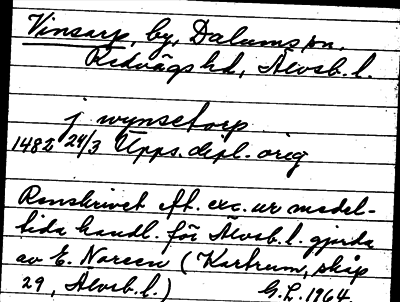 Vinsarp, by, Dalums sn,
Redvägs hd, Älvsb. l.
j wynsetorp
1482 24/3 Upps. dipl. orig
Renskrivet eft. exc. ur medel-
tida handl. för Älvsb. l. gjorda
av E. Noreen (Kartrum, skåp
29, Älvsb. l.)
G. L. 1964.